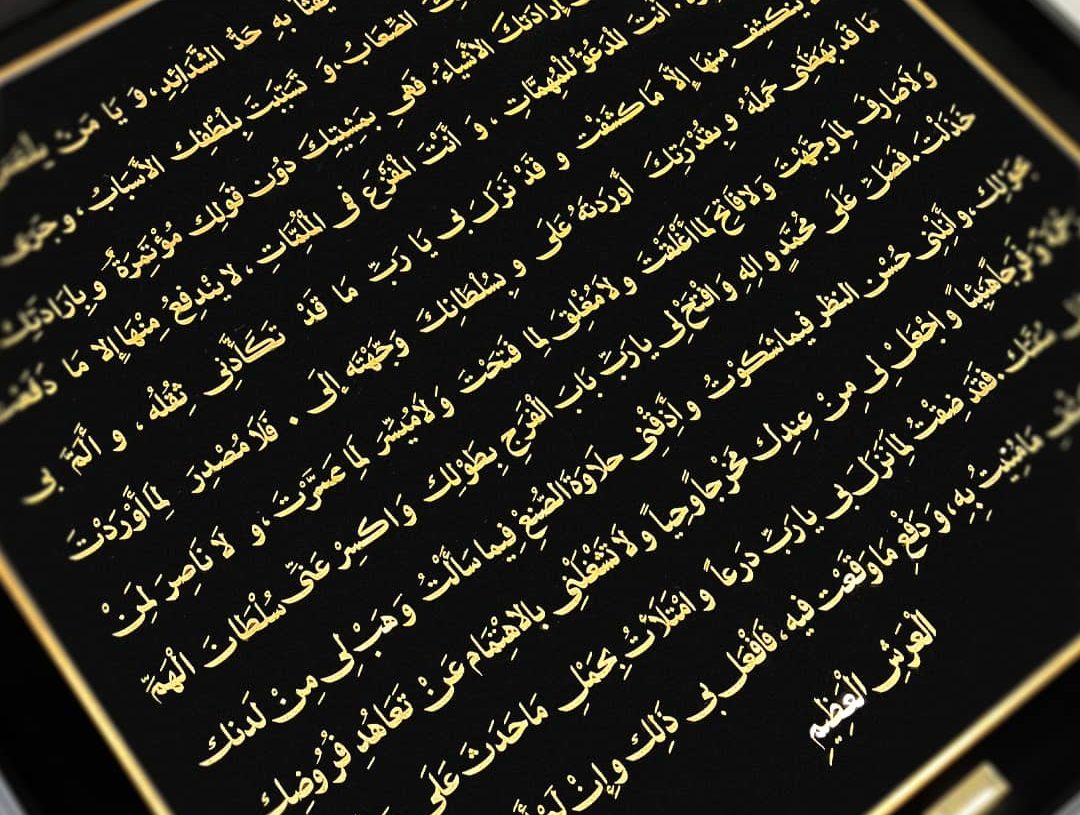 يَفْثَأُ بِهِ حَدُّ الشَّدَائِدِ، وَ يَا مَنْ يُلْتَمَسُ
الصِّعَابُ، وَ تَسَبَّبَتْ بِلُطْفِكَ الأَسْبَابُ، وَ جَرَى
إِرَادَتِكَ الأَشْيَاءُ. فَهِيَ بِمَشِيَّتِكَ دُونَ قَوْلِكَ مُؤْتَمِرَةٌ وَ بِإِرَادَتِكَ
أَنْتَ الْمَدْعُوُّ لِلْمُهِمَّاتِ، وَ أَنْتَ الْمَفْزَعُ فِى الْمُلِمَّاتِ، لا يَنْدَفِعُ مِنْهَا إِلا مَا دَفَعْتَ
يَنْكَشِفُ مِنْهَا إِلَّا مَا كَشَفْتَ وَ قَدْ نَزَلَ بِى يَا رَبِّ مَا قَدْ تَكَأَّدَنِى ثِقْلُهُ، وَ أَلَمَّ بِى
مَا قَدْ بَهَظَنِى حَمْلُهُ وَ بِقُدْرَتِكَ أَوْرَدْتَهُ عَلَى وَ بِسُلْطَانِكَ وَجَّهْتَهُ إِلَى. فَلَا مُصْدِرَ لِمَا أَوْرَدْتَ
وَلَا صَارِفَ لِمَا وَجَّهْتَ وَلَا فَاتِحَ لِمَا أَغْلَقْتَ وَلَا مُغْلِقَ لِمَا فَتَحْتَ وَ لَا مُيَسِّرَ لِمَا عَسَّرْتَ، وَ لَا نَاصِرَ لِمَنْ
خَذَلْتَ. فَصَلِّ عَلَى مُحَمَّدٍ وَالِهِ وَ افْتَحْ لِى يَا رَبِّ بَابَ الْفَرَجِ بِطَوْلِكَ وَ اكْسِرْ عَنِّى سُلْطَانَ الْهَمِّ
بِحَوْلِكَ، وَ أَنِلْنِى حُسْنَ النظرِ فِيمَا شَكَوْتُ وَ أَذِقْنِى حَلَاوَةَ الصُّنْعِ فِيمَا سَأَلْتُ وَ هَبْ لِى مِنْ لَدنك
رَحْمَةً وَ فَرَجاً هَنِيئاً وَ اجْعَلْ لِى مِنْ عِنْدِكَ مَخْرَجاً وَحِياً وَ لَا تَشْغَلْنِى بِالاهْتِمَامِ عَنْ تَعَاهُدِ فُرُوضِكَ
سُنَّتِكَ. فَقَدْ ضِقْتُ لِمَا نَزَلَ بِى يَا رَبِّ ذَرْعاً وَ امْتَلَأْتُ بِحَمْلِ مَا حَدَثَ عَلَى
مَا مُنِيتُ بِهِ، وَ دَفْعِ مَا وَقَعْتُ فِيهِ، فَافْعَلْ بِى ذَلِكَ وَ إِنْ لَمْ
الْعَرْشِ الْعَظِيمِ